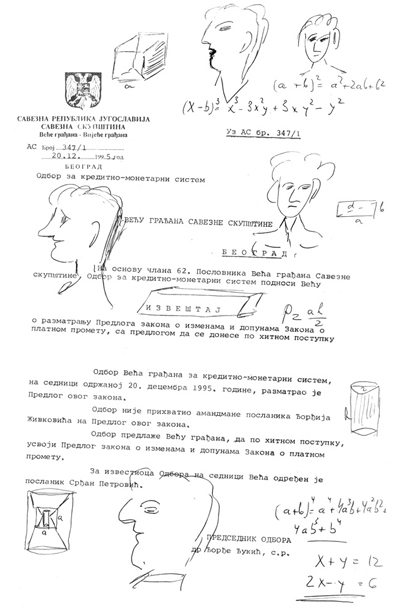 a
(a+b)²=a²+2ab+b2
(x-b)³=x³-3x²y+3xy²-y²
САВЕЗНА РЕПУБЛИКА ЈУГОСЛАВИЈА
САВЕЗНА СКУПШТИНА
Веће грађана - Вијеће грађана
АС Број 347/1
20.12. 1995. год
БЕОГРАД
Уз АС бр. 347/1
Одбор за кредитно-монетарни систем
ВЕЋУ ГРАЂАНА САВЕЗНЕ СКУПШТИНЕ
БЕОГРАД
d b
a
На основу члана 62. Пословника Већа грађана Савезне
скупштине, Одбор за кредитно-монетарни систем подноси Већу
ИЗВЕШТАЈ
P= ah/2
о разматрању Предлога закона о изменама и допунама Закона о
платном промету, са предлогом да се донесе по хитном поступку
Одбор Већа грађана за кредитно-монетарни систем,
на седници одржаној 20. децембра 1995. године, разматрао је
Предлог овог закона.
Одбор није прихватио амандмане посланика Ђорђија
Живковића на Предлог овог закона.
Одбор предлаже Већу грађана, да по хитном поступку,
усвоји Предлог закона о изменама и допунама Закона о платном
промету.
За известиоца Одбора на седници Већа одређен је
посланик Срђан Петровић.
a
ПРЕДСЕДНИК ОДБОРА
др Ђорђе Ђукић, с.р.
x+y=12
2x-y=6